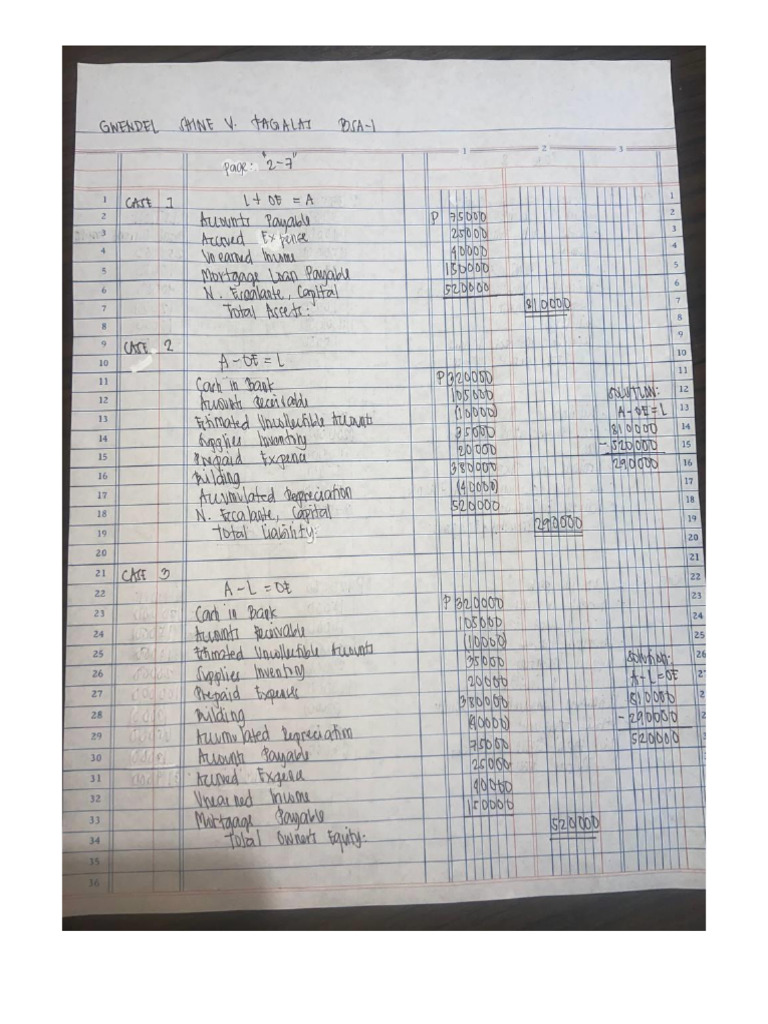 GWENDEL SHINE V. TAGALAJ BSA-1
Page: "2-7"
1 2 3
1 CASE 1 L + OE = A 1
2 Accounts Payable P 75000 2
3 Accrued Expence 25000 3
4 Unearned Income 40000 4
5 Mortgage Loan Payable 150000 5
6 N. Escalante, Capital 520000 6
7 Total Assets: 810000 7
8 8
9 CASE 2 9
10 A - OE = L 10
11 Cash in Bank P 320000 11
12 Accounts Receivable 105000 SOLUTION: 12
13 Estimated Uncollectible Accounts (10000) A - OE = L 13
14 Supplies Inventory 35000 810000 14
15 Prepaid Expense 20000 - 520000 15
16 Building 380000 290000 16
17 Accumulated Depreciation (40000) 17
18 N. Escalante, Capital 520000 18
19 Total Liability: 290000 19
20 20
21 CASE 3 21
22 A - L = OE 22
23 Cash in Bank P 320000 23
24 Accounts Receivable 105000 24
25 Estimated Uncollectible Accounts (10000) 25
26 Supplies Inventory 35000 Solution: 26
27 Prepaid Expenses 20000 A - L = OE
28 Building 380000 810000
29 Accumulated Depreciation (40000) - 290000
30 Accounts Payable 75000 520000 30
31 Accrued Expense 25000 31
32 Unearned Income 40000 32
33 Mortgage Payable 150000 33
34 Total Owners Equity: 520000 34
35 35
36 36